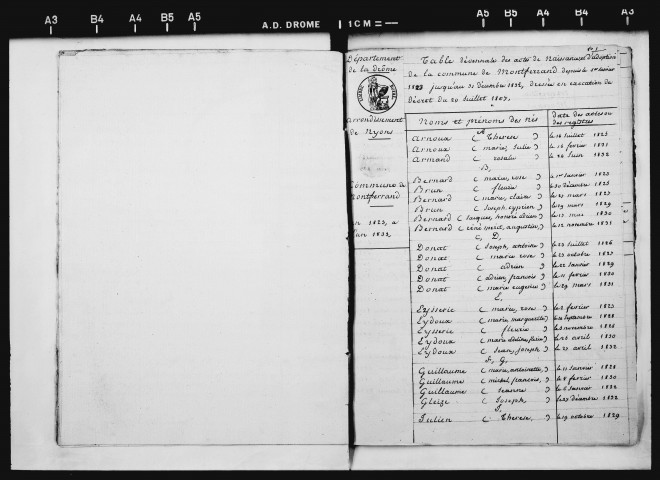 A3 B4 A4 B5 A5 A.D. DROME 1CM A5 B5 A4 B4 A3
Département
de la Drôme
Arrondissement
de Nyons
Commune de
Montferrand
an 1823, à
l'an 1832,
Table décennale des actes de Naissances et d'adoption
de la commune de Montferrand depuis le 1er Janvier
1823 jusqu'au 31 décembre 1832, dressée en exécution du
décret du 20 Juillet 1807.
Noms et prénoms des nés date des actes ou des registres
A
Arnoux ( Therese ) le 16 Juillet 1823
Arnoux ( marie, Julie ) le 18 fevrier 1831
Armand ( rosalie ) le 24 Juin 1832
B,
Bernard ( marie, rose ) le 1er Janvier 1823
Brun ( fleurie ) le 30 décembre 1823
Bernard ( marie, claire ) le 21 mars 1825
Brun ( Joseph, cyprien ) le 19 mars 1829
Bernard ( Jacques, honoré adrien ) le 13 mai 1830
Bernard ( augustin ) le 12 novembre 1831
C, D,
Donat ( Joseph, antoine ) le 23 Juillet 1826
Donat ( marie rose ) le 23 octobre 1827
Donat ( adrien ) le 22 Janvier 1829
Donat ( adrien, francois ) le 11 fevrier 1830
Donat ( marie eugenie ) le 29 mars 1831
E,
Eysserie ( marie, rose ) le 2 fevrier 1823
Eydoux ( marie, marguerite ) le septembre 1828
Eysserie ( fleurie ) le 3 novembre 1828
Eydoux ( marie ) le 26 avril 1830
Eydoux ( Jean, Joseph ) le 27 avril 1832
F, G,
Guillaume ( marie, antoinette ) le 11 Janvier 1828
Guillaume ( michel, francois, ) le 8 fevrier 1830
Guillaume ( Jeanne ) le 6 Janvier 1832
Gleize ( Joseph ) le 27 décembre 1832
J,
Julien ( Therese, ) le 19 octobre 1829